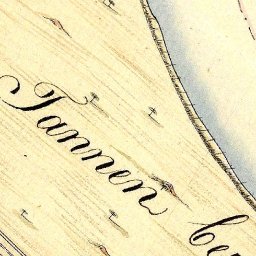 Tannen be